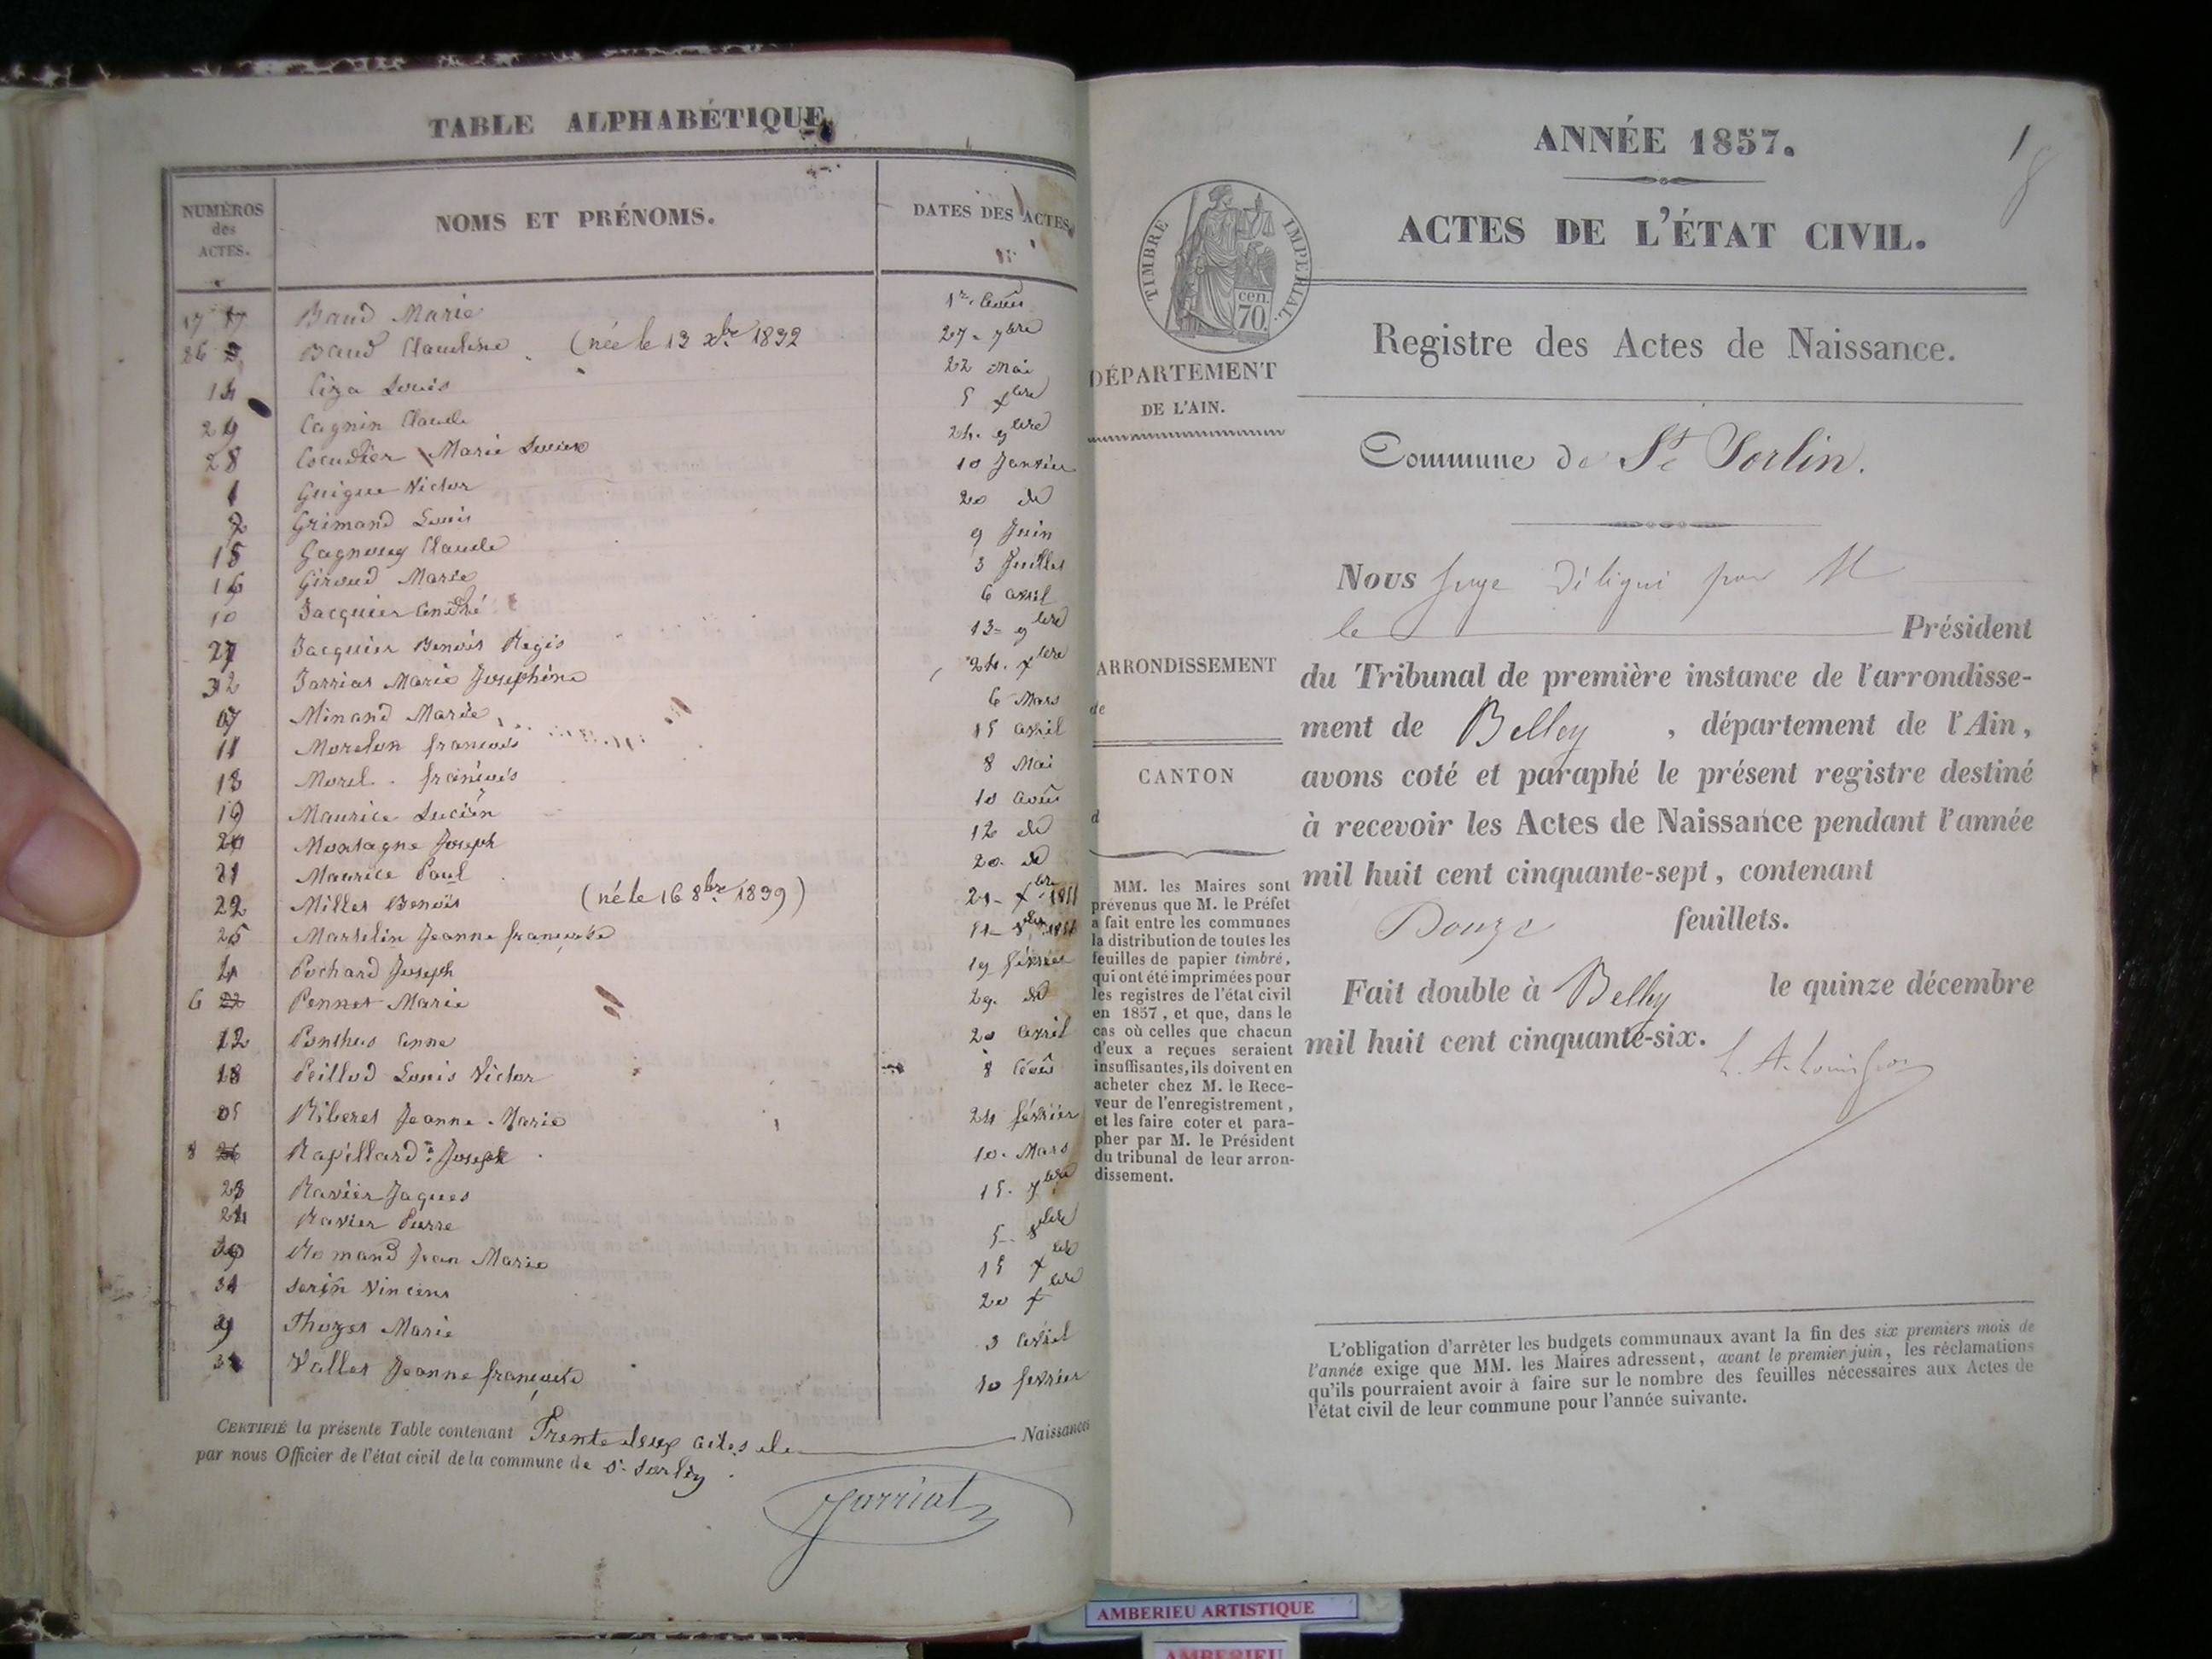 TABLE ALPHABÉTIQUE
NUMÉROS des ACTES. NOMS ET PRÉNOMS. DATES DES ACTES.
17 Baud Marie 1er Août
26 Baud Claudine (née le 13 xbre 1832 27 7bre
14 Ciza Louis 22 Mai
29 Cagnin Claude 5 xbre
28 Coeudier Marie 24 9bre
1 Guigue Victor 10 Janvier
2 Grimand Louis 20 do
15 Claude 9 Juin
16 Giroud Marie 3 Juillet
10 Jacquier André 6 avril
27 Jacquier Benoit Regis 13 9bre
32 Jarriat Marie Josephine 24 xbre
07 Minand Marie 6 Mars
11 Morelon françois 15 avril
13 Morel françois 8 Mai
19 Maurice Lucien 10 août
20 Montagne Joseph 12 do
21 Maurice Paul 20 do
22 Millet Benoit (né le 16 8bre 1839)
25 Marselin Jeanne françoise
4 Pochard Joseph 19 février
6 Pennet Marie 29 do
12 Ponthus Anne 20 avril
18 Peillod Louis Victor 8 Août
05 Riberet Jeanne Marie 24 février
8 Rapillard Joseph 10 Mars
23 Ravier Jaques 15 7bre
24 Ravier Pierre 5 8bre
30 Romand Jean Marie 15 xbre
31 Serin Vincent 20 xbre
9 Thozet Marie 3 Avril
3 Vallet Jeanne françoise 10 fevrier
CERTIFIÉ la présente Table contenant Trente deux actes de Naissances
par nous Officier de l'état civil de la commune de St Sorlin
Jarriat
ANNÉE 1857.
1
8
ACTES DE L'ÉTAT CIVIL.
TIMBRE IMPERIAL.
cen.
70.
Registre des Actes de Naissance.
DÉPARTEMENT
DE L'AIN.
Commune de St Sorlin.
Nous Juge Délégué par M
le Président
ARRONDISSEMENT
de
CANTON
d
du Tribunal de première instance de l'arrondisse-
ment de Belley , département de l'Ain,
avons coté et paraphé le présent registre destiné
à recevoir les Actes de Naissance pendant l'année
mil huit cent cinquante-sept, contenant
Douze feuillets.
Fait double à Belley le quinze décembre
mil huit cent cinquante-six.
MM. les Maires sont
prévenus que M. le Préfet
a fait entre les communes
la distribution de toutes les
feuilles de papier timbré,
qui ont été imprimées pour
les registres de l'état civil
en 1857, et que, dans le
cas où celles que chacun
d'eux a reçues seraient
insuffisantes, ils doivent en
acheter chez M. le Rece-
veur de l'enregistrement,
et les faire coter et para-
pher par M. le Président
du tribunal de leur arron-
dissement.
L'obligation d'arrêter les budgets communaux avant la fin des six premiers mois de
l'année exige que MM. les Maires adressent, avant le premier juin, les réclamations
qu'ils pourraient avoir à faire sur le nombre des feuilles nécessaires aux Actes de
l'état civil de leur commune pour l'année suivante.
AMBERIEU ARTISTIQUE
AMBERIEU